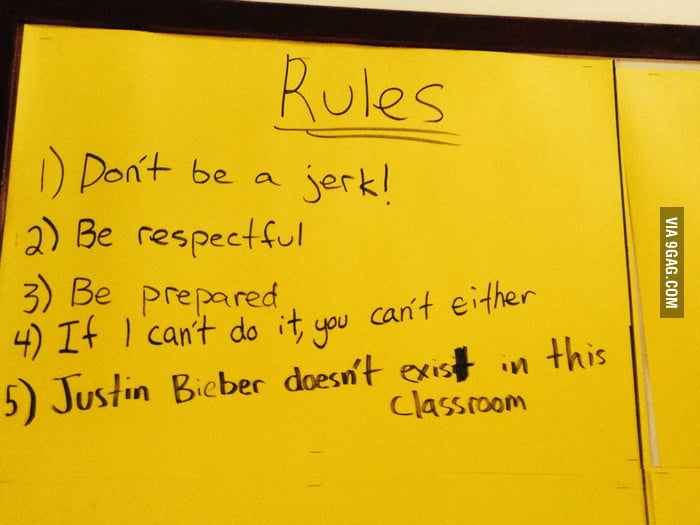 Rules
1) Don't be a jerk!
2) Be respectful
3) Be prepared
4) If I can't do it, you can't either
5) Justin Bieber doesn't exist in this
classroom
VIA 9GAG.COM